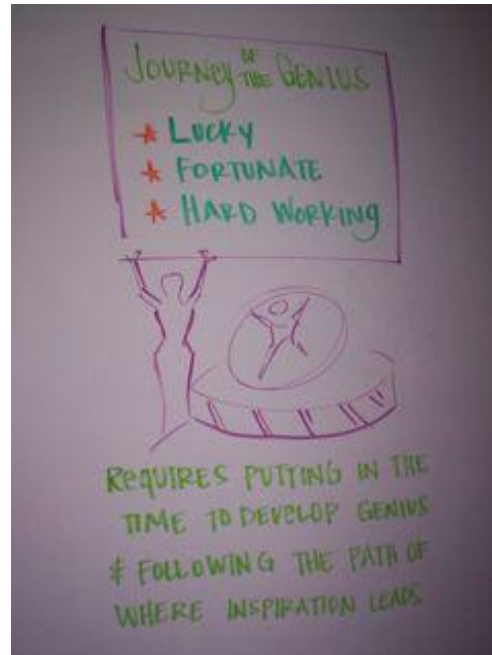 JOURNEY OF THE GENIUS
★ LUCKY
★ FORTUNATE
★ HARD WORKING
REQUIRES PUTTING IN THE
TIME TO DEVELOP GENIUS
& FOLLOWING THE PATH OF
WHERE INSPIRATION LEADS